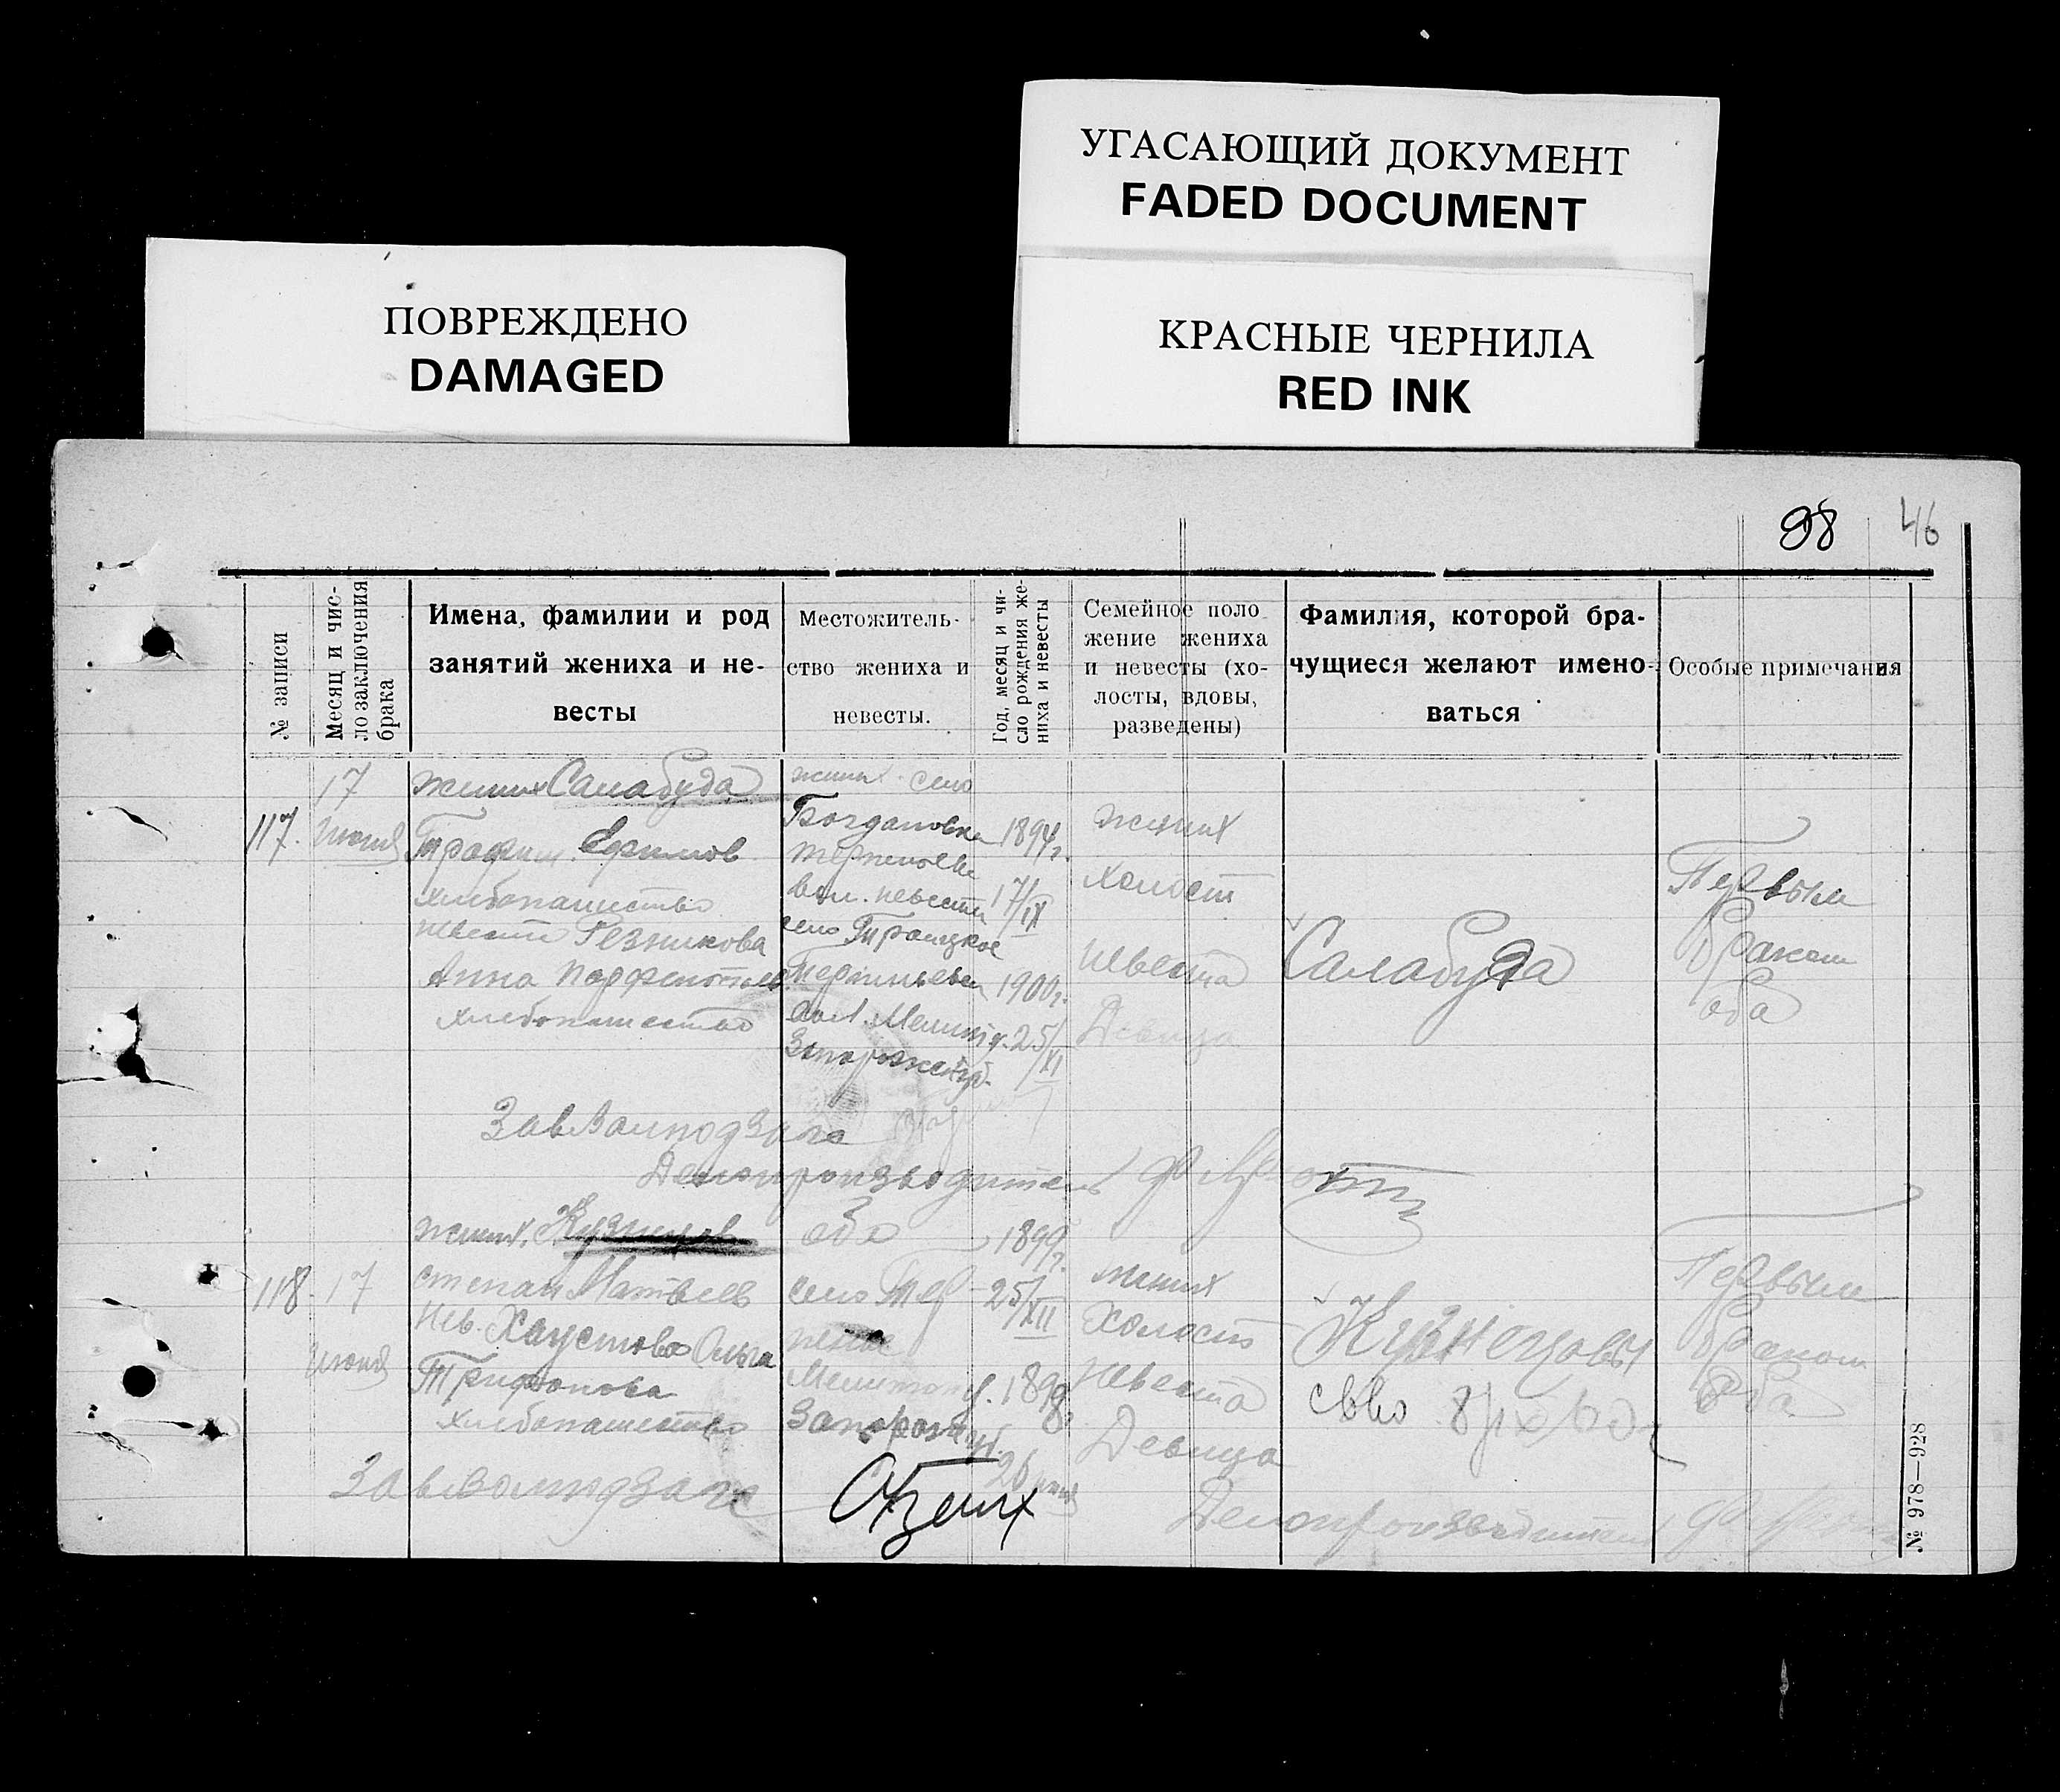 УГАСАЮЩИЙ ДОКУМЕНТ
FADED DOCUMENT
КРАСНЫЕ ЧЕРНИЛА
RED INK
ПОВРЕЖДЕНО
DAMAGED
98 46
№ записи
Месяц и чис-
ло заключения
брака
Имена, фамилии и род
занятий жениха и не-
весты
Местожитель-
ство жениха и
невесты.
Год, месяц и чи-
сло рождения же-
ниха и невесты
Семейное поло
жение жениха
и невесты (хо-
лосты, вдовы,
разведены)
Фамилия, которой бра-
чущиеся желают имено-
ваться
Особые примечания
117.
17
июня
жених Салабуда
Трофим Ефимов
хлебопашество
невеста Резникова
Анна
хлебопашество
жених село
Богдановка
вол. невеста
село Троицкое
вол. Мелит у.
Запорож губ.
1894 г.
17/IX
1900 г.
25/XI
жених
холост
невеста
Девица
Салабуда
Первым
браком
оба
Завволподзагс
Делопроизводитель
118. 17
июня
жених. Кузнецов
степан Матвеев
Нев. Хаустова Ольга
Трифонова
хлебопашество
оба
село Тер
пение
Мелитоп у.
Запорож губ.
1899 г.
25/XII
1898 г.
26
жених
холост
невеста
Девица
Кузнецовы
Первым
браком
оба
Завволподзагс
Делопроизводитель
№ 978—928